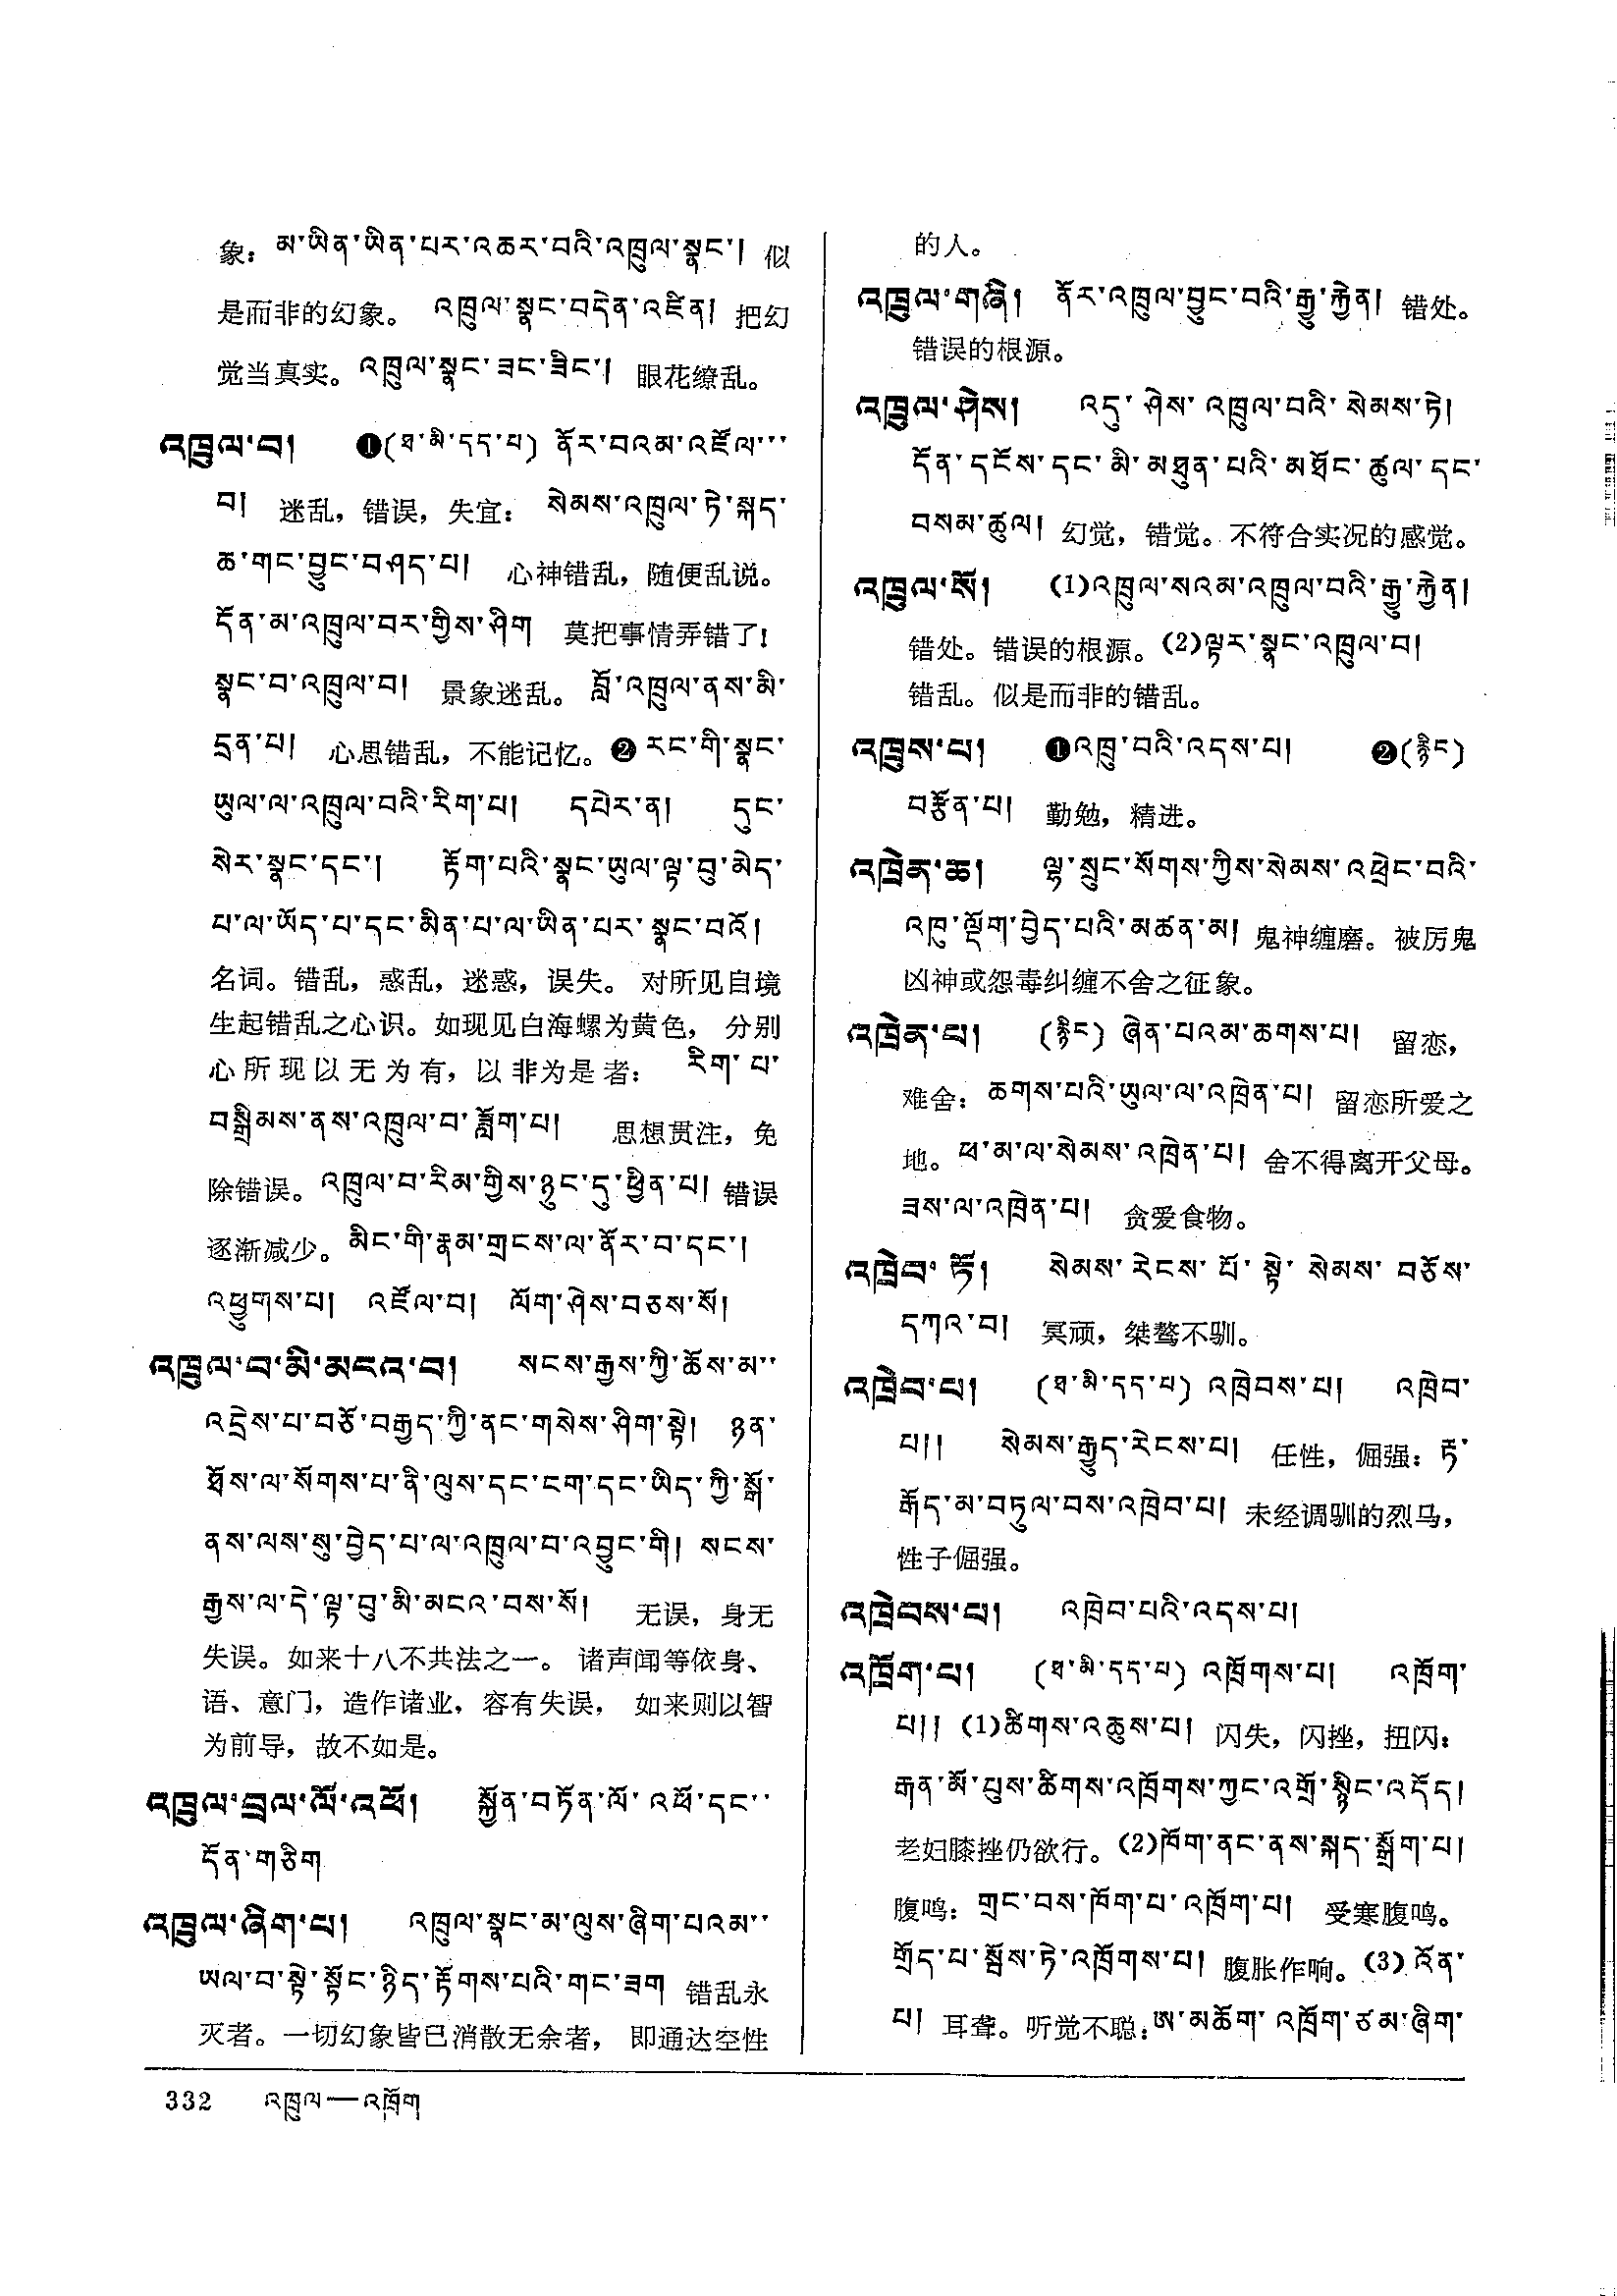 象: མ་ཡིན་ཡིན་པར་འཆར་བའི་འཁྲུལ་སྣང་། 似
是而非的幻象。 འཁྲུལ་སྣང་བདེན་འཛིན། 把幻
觉当真实。འཁྲུལ་སྣང་ཟང་ཟིང་། 眼花缭乱。
འཁྲུལ་བ། ❶(ཐ་མི་དད་པ) ནོར་བའམ་འཛོལ་་་
བ། 迷乱，错误，失宜: སེམས་འཁྲུལ་ཏེ་སྐད་
ཆ་གང་བྱུང་བཤད་པ། 心神错乱，随便乱说。
དོན་མ་འཁྲུལ་བར་གྱིས་ཤིག 莫把事情弄错了!
སྣང་བ་འཁྲུལ་བ། 景象迷乱。 བློ་འཁྲུལ་ནས་མི་
དྲན་པ། 心思错乱，不能记忆。❷ རང་གི་སྣང་
ཡུལ་ལ་འཁྲུལ་བའི་རིག་པ། དཔེར་ན། དུང་
སེར་སྣང་དང་། རྟོག་པའི་སྣང་ཡུལ་ལྟ་བུ་མེད་
པ་ལ་ཡོད་པ་དང་མིན་པ་ལ་ཡིན་པར་སྣང་བའོ།
名词。错乱，惑乱，迷惑，误失。 对所见自境
生起错乱之心识。如现见白海螺为黄色， 分别
心所现以无为有，以非为是者: རིག་པ་
བསྒྲིམས་ནས་འཁྲུལ་བ་ཟློག་པ། 思想贯注，免
除错误。འཁྲུལ་བ་རིམ་གྱིས་ཉུང་དུ་ཕྱིན་པ། 错误
逐渐减少。མིང་གི་རྣམ་གྲངས་ལ་ནོར་བ་དང་།
འཕྱུགས་པ། འཛོལ་བ། ལོག་ཤེས་བཅས་སོ།
འཁྲུལ་བ་མི་མངའ་བ། སངས་རྒྱས་ཀྱི་ཆོས་མ་་
འདྲེས་པ་བཅོ་བརྒྱད་ཀྱི་ནང་གསེས་ཤིག་སྟེ། ཉན་
ཐོས་ལ་སོགས་པ་ནི་ལུས་དང་ངག་དང་ཡིད་ཀྱི་སྒོ་
ནས་ལས་སུ་བྱེད་པ་ལ་འཁྲུལ་བ་འབྱུང་གི། སངས་
རྒྱས་ལ་དེ་ལྟ་བུ་མི་མངའ་བས་སོ། 无误，身无
失误。如来十八不共法之一。 诸声闻等依身、
语、意门，造作诸业，容有失误， 如来则以智
为前导，故不如是。
འཁྲུལ་བྲལ་ལོ་འཕོ། སྐྱོན་བཏོན་ལོ་འཕོ་དང་་
དོན་གཅིག
འཁྲུལ་ཞིག་པ། འཁྲུལ་སྣང་མ་ལུས་ཞིག་པའམ་་
ཡལ་བ་སྟེ་སྟོང་ཉིད་རྟོགས་པའི་གང་ཟག 错乱永
灭者。一切幻象皆已消散无余者， 即通达空性
的人。
འཁྲུལ་གཞི། ནོར་འཁྲུལ་བྱུང་བའི་རྒྱུ་རྐྱེན། 错处。
错误的根源。
འཁྲུལ་ཤེས། འདུ་ཤེས་འཁྲུལ་བའི་སེམས་ཏེ།
དོན་དངོས་དང་མི་མཐུན་པའི་མཐོང་ཚུལ་དང་
བསམ་ཚུལ། 幻觉，错觉。不符合实况的感觉。
འཁྲུལ་སོ། (1)འཁྲུལ་སའམ་འཁྲུལ་བའི་རྒྱུ་རྐྱེན།
错处。错误的根源。(2)ལྟར་སྣང་འཁྲུལ་བ།
错乱。似是而非的错乱。
འཁྲུས་པ། ❶འཁྲུ་བའི་འདས་པ། ❷(རྙིང)
བརྩོན་པ། 勤勉，精进。
འཁྲེན་ཆ། ལྷ་སྲུང་སོགས་ཀྱིས་སེམས་འཕྲེང་བའི་
འཁུ་ལྡོག་བྱེད་པའི་མཚན་མ། 鬼神缠磨。被厉鬼
凶神或怨毒纠缠不舍之征象。
འཁྲེན་པ། (རྙིང) ཞེན་པའམ་ཆགས་པ། 留恋，
难舍: ཆགས་པའི་ཡུལ་ལ་འཁྲེན་པ། 留恋所爱之
地。ཕ་མ་ལ་སེམས་འཁྲེན་པ། 舍不得离开父母。
ཟས་ལ་འཁྲེན་པ། 贪爱食物。
འཁྲེབ་ཏོ། སེམས་རེངས་པོ་སྟེ་སེམས་བཅོས་
དཀའ་བ། 冥顽，桀骜不驯。
འཁྲེབ་པ། (ཐ་མི་དད་པ) འཁྲེབས་པ། འཁྲེབ་
པ།། སེམས་རྒྱུད་རེངས་པ། 任性，倔强: རྟ་
རྒོད་མ་བཏུལ་བས་འཁྲེབ་པ། 未经调驯的烈马，
性子倔强。
འཁྲེབས་པ། འཁྲེབ་པའི་འདས་པ།
འཁྲོག་པ། (ཐ་མི་དད་པ) འཁྲོགས་པ། འཁྲོག་
པ།། (1)ཚིགས་འཆུས་པ། 闪失，闪挫，扭闪:
རྒན་མོ་པུས་ཚིགས་འཁྲོགས་ཀྱང་འགྲོ་སྙིང་འདོད།
老妇膝挫仍欲行。(2)ཁོག་ནང་ནས་སྐད་སྒྲོག་པ།
腹鸣: གྲང་བས་ཁོག་པ་འཁྲོག་པ། 受寒腹鸣。
གྲོད་པ་སྦོས་ཏེ་འཁྲོགས་པ། 腹胀作响。(3) འོན་
པ། 耳聋。听觉不聪: ཨ་མཆོག་འཁྲོག་ཙམ་ཞིག་
332 འཁྲུལ—འཁྲོག